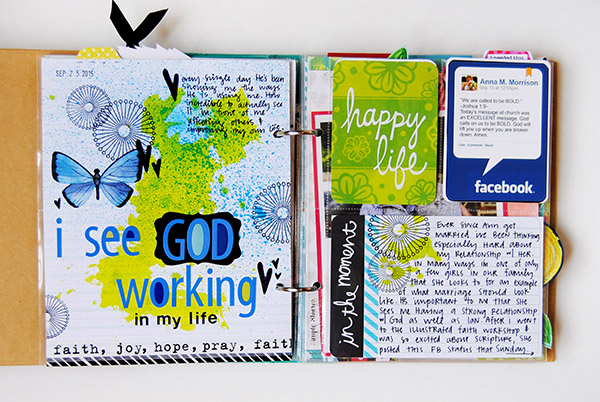 SEP. 2 5 2015
every single day He's been
showing me the ways
He is using me. How
incredible to actually see
it in front of me
affecting others &
improving my own life.
i see GOD
working
in my life
faith, joy, hope, pray, fait
happy
life
Anna M. Morrison
"We are called to be BOLD."
Joshua 1:9-
Today's message at church was
an EXCELLENT message. God
calls on us to be BOLD. God will
lift you up when you are broken
down. Amen.
Like · Comment · Share
facebook
in the moment
simple stories
Ever since Ann got
married I've been thinking
especially hard about
my relationship w/ her.
In many ways I'm one of only
a few girls in our family
that she looks to for an example
of what marriage should look
like. It's important to me that she
sees me having a strong relationship
w/ God as well as Ian. After I went
to the illustrated faith workshop &
was so excited about scripture, she
posted this FB status that Sunday...